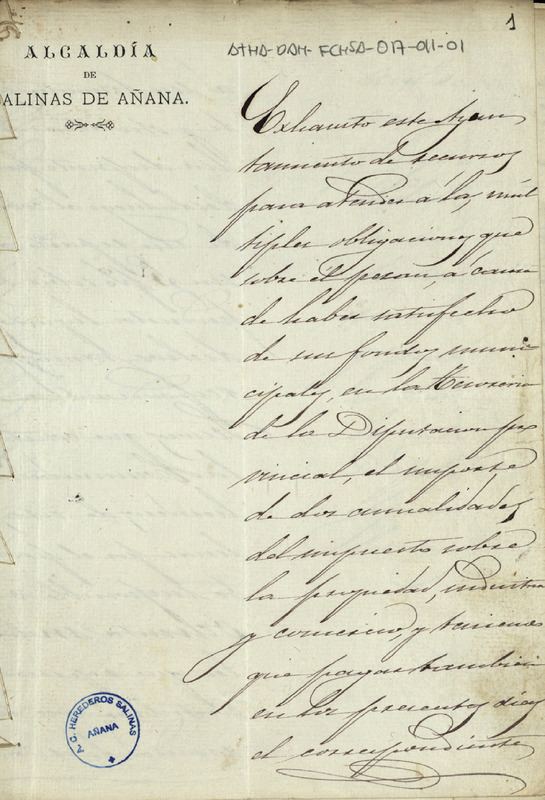 1
ATHA-DAH-FCHSA-017-011-01
ALCALDÍA
DE
ALINAS DE AÑANA.
Exhausto este Ayun
tamiento de recursos
para atender á las múl
tiples obligaciones que
sobre él pesan, á causa
de haber satisfecho
de sus fondos muni
cipales, en la Tesorería
de la Diputacion pro
vincial, el importe
de dos anualidades
del impuesto sobre
la propiedad, industria
y comercio, y tenemos
que pagar tambien
en los presentes días
el correspondiente
A. G. HEREDEROS SALINAS
AÑANA